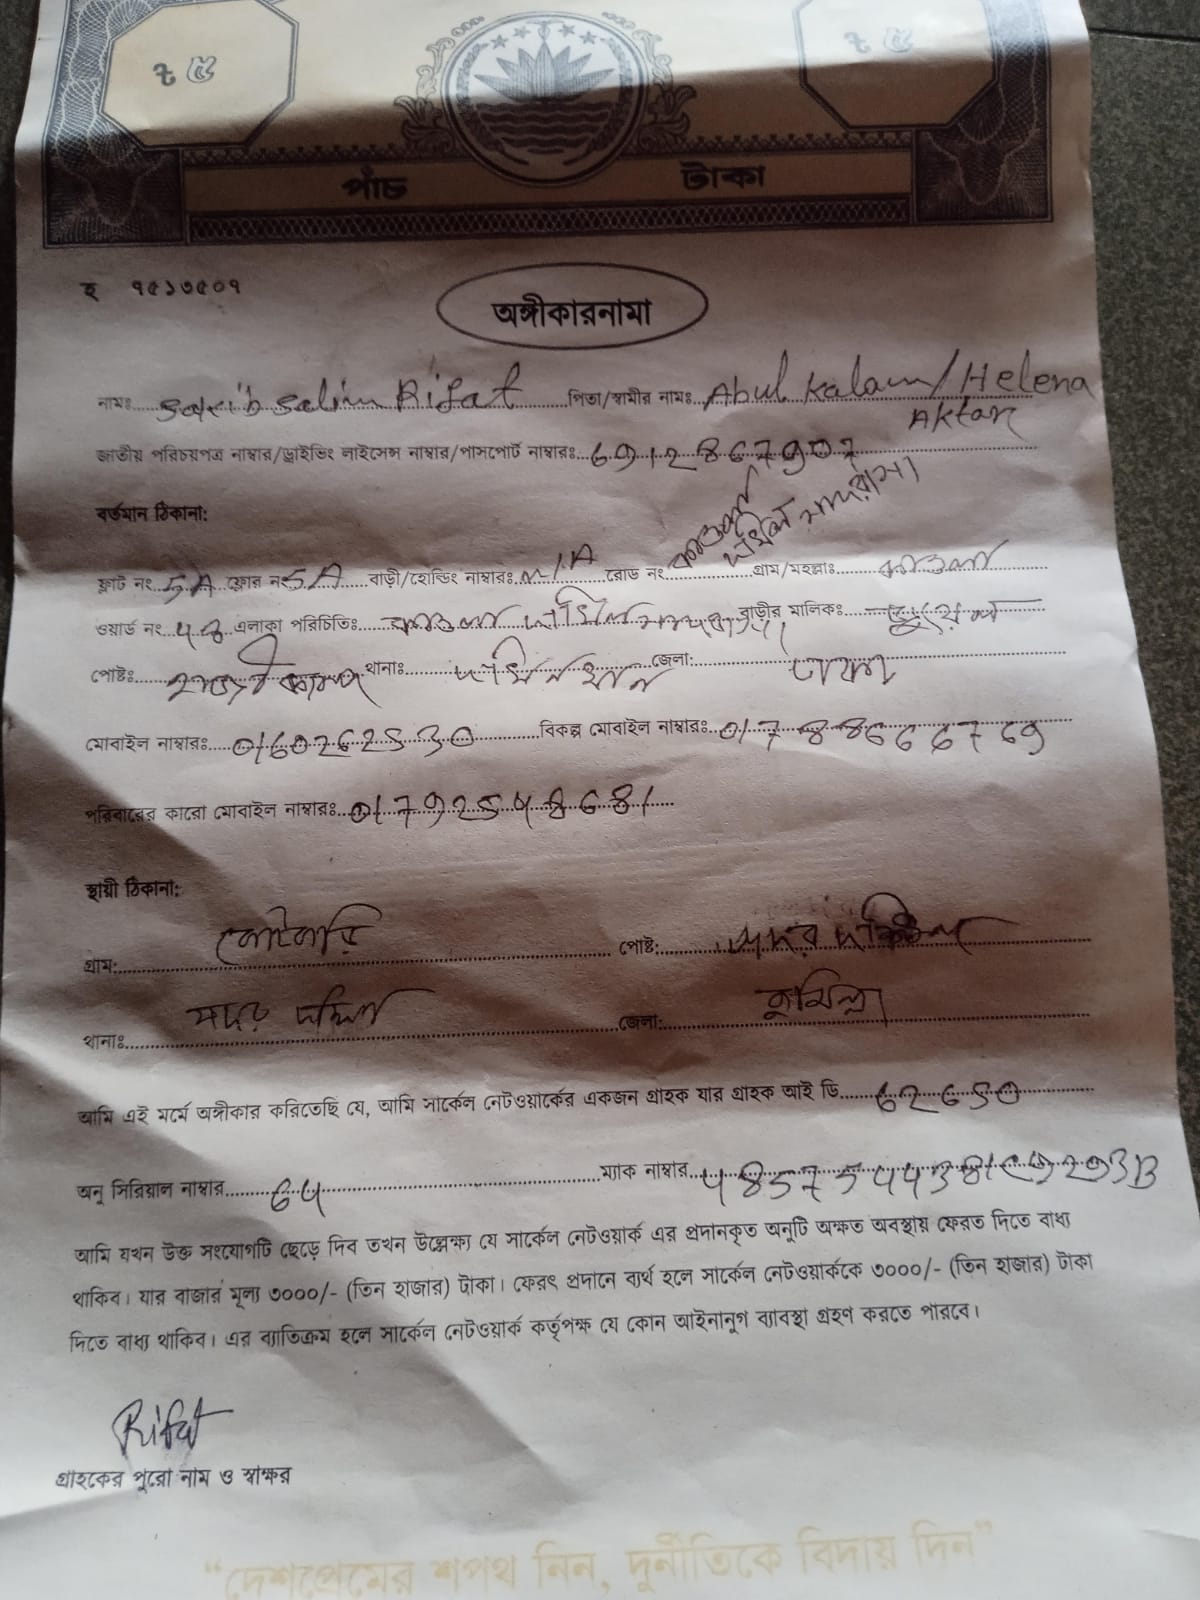 ট ৫ ট ৫
পাঁচ টাকা
হ ৭৫১৩৫০৭
অঙ্গীকারনামা
নামঃ Sakib Salim Rifat পিতা/স্বামীর নামঃ Abul Kalam/Helena Aktar
জাতীয় পরিচয়পত্র নাম্বার/ড্রাইভিং লাইসেন্স নাম্বার/পাসপোর্ট নাম্বারঃ 6912867907
বর্তমান ঠিকানা:
ফ্লাট নং 5A ফ্লোর নং 5A বাড়ী/হোল্ডিং নাম্বারঃ N/A রোড নং কাওলা দাখিল মাদরাসা গ্রাম/মহল্লাঃ কাওলা
ওয়ার্ড নং এলাকা পরিচিতিঃ কাওলা দাখিল মাদরাসা বাড়ীর মালিকঃ
পোষ্টঃ থানাঃ দক্ষিনখান জেলা: ঢাকা
মোবাইল নাম্বারঃ 0160262530 বিকল্প মোবাইল নাম্বারঃ 01788666769
পরিবারের কারো মোবাইল নাম্বারঃ
স্থায়ী ঠিকানা:
গ্রাম: কোটবাড়ি পোষ্ট: সদর দক্ষিন
থানাঃ সদর দক্ষিন জেলা: কুমিল্লা
আমি এই মর্মে অঙ্গীকার করিতেছি যে, আমি সার্কেল নেটওয়ার্কের একজন গ্রাহক যার গ্রাহক আই ডি 62650
অনু সিরিয়াল নাম্বার ম্যাক নাম্বার
আমি যখন উক্ত সংযোগটি ছেড়ে দিব তখন উল্লেক্ষ্য যে সার্কেল নেটওয়ার্ক এর প্রদানকৃত অনুটি অক্ষত অবস্থায় ফেরত দিতে বাধ্য
থাকিব। যার বাজার মূল্য ৩০০০/- (তিন হাজার) টাকা। ফেরৎ প্রদানে ব্যর্থ হলে সার্কেল নেটওয়ার্ককে ৩০০০/- (তিন হাজার) টাকা
দিতে বাধ্য থাকিব। এর ব্যতিক্রম হলে সার্কেল নেটওয়ার্ক কর্তৃপক্ষ যে কোন আইনানুগ ব্যবস্থা গ্রহণ করতে পারবে।
Rifat
গ্রাহকের পুরো নাম ও স্বাক্ষর
“দেশপ্রেমের শপথ নিন, দুর্নীতিকে বিদায় দিন”